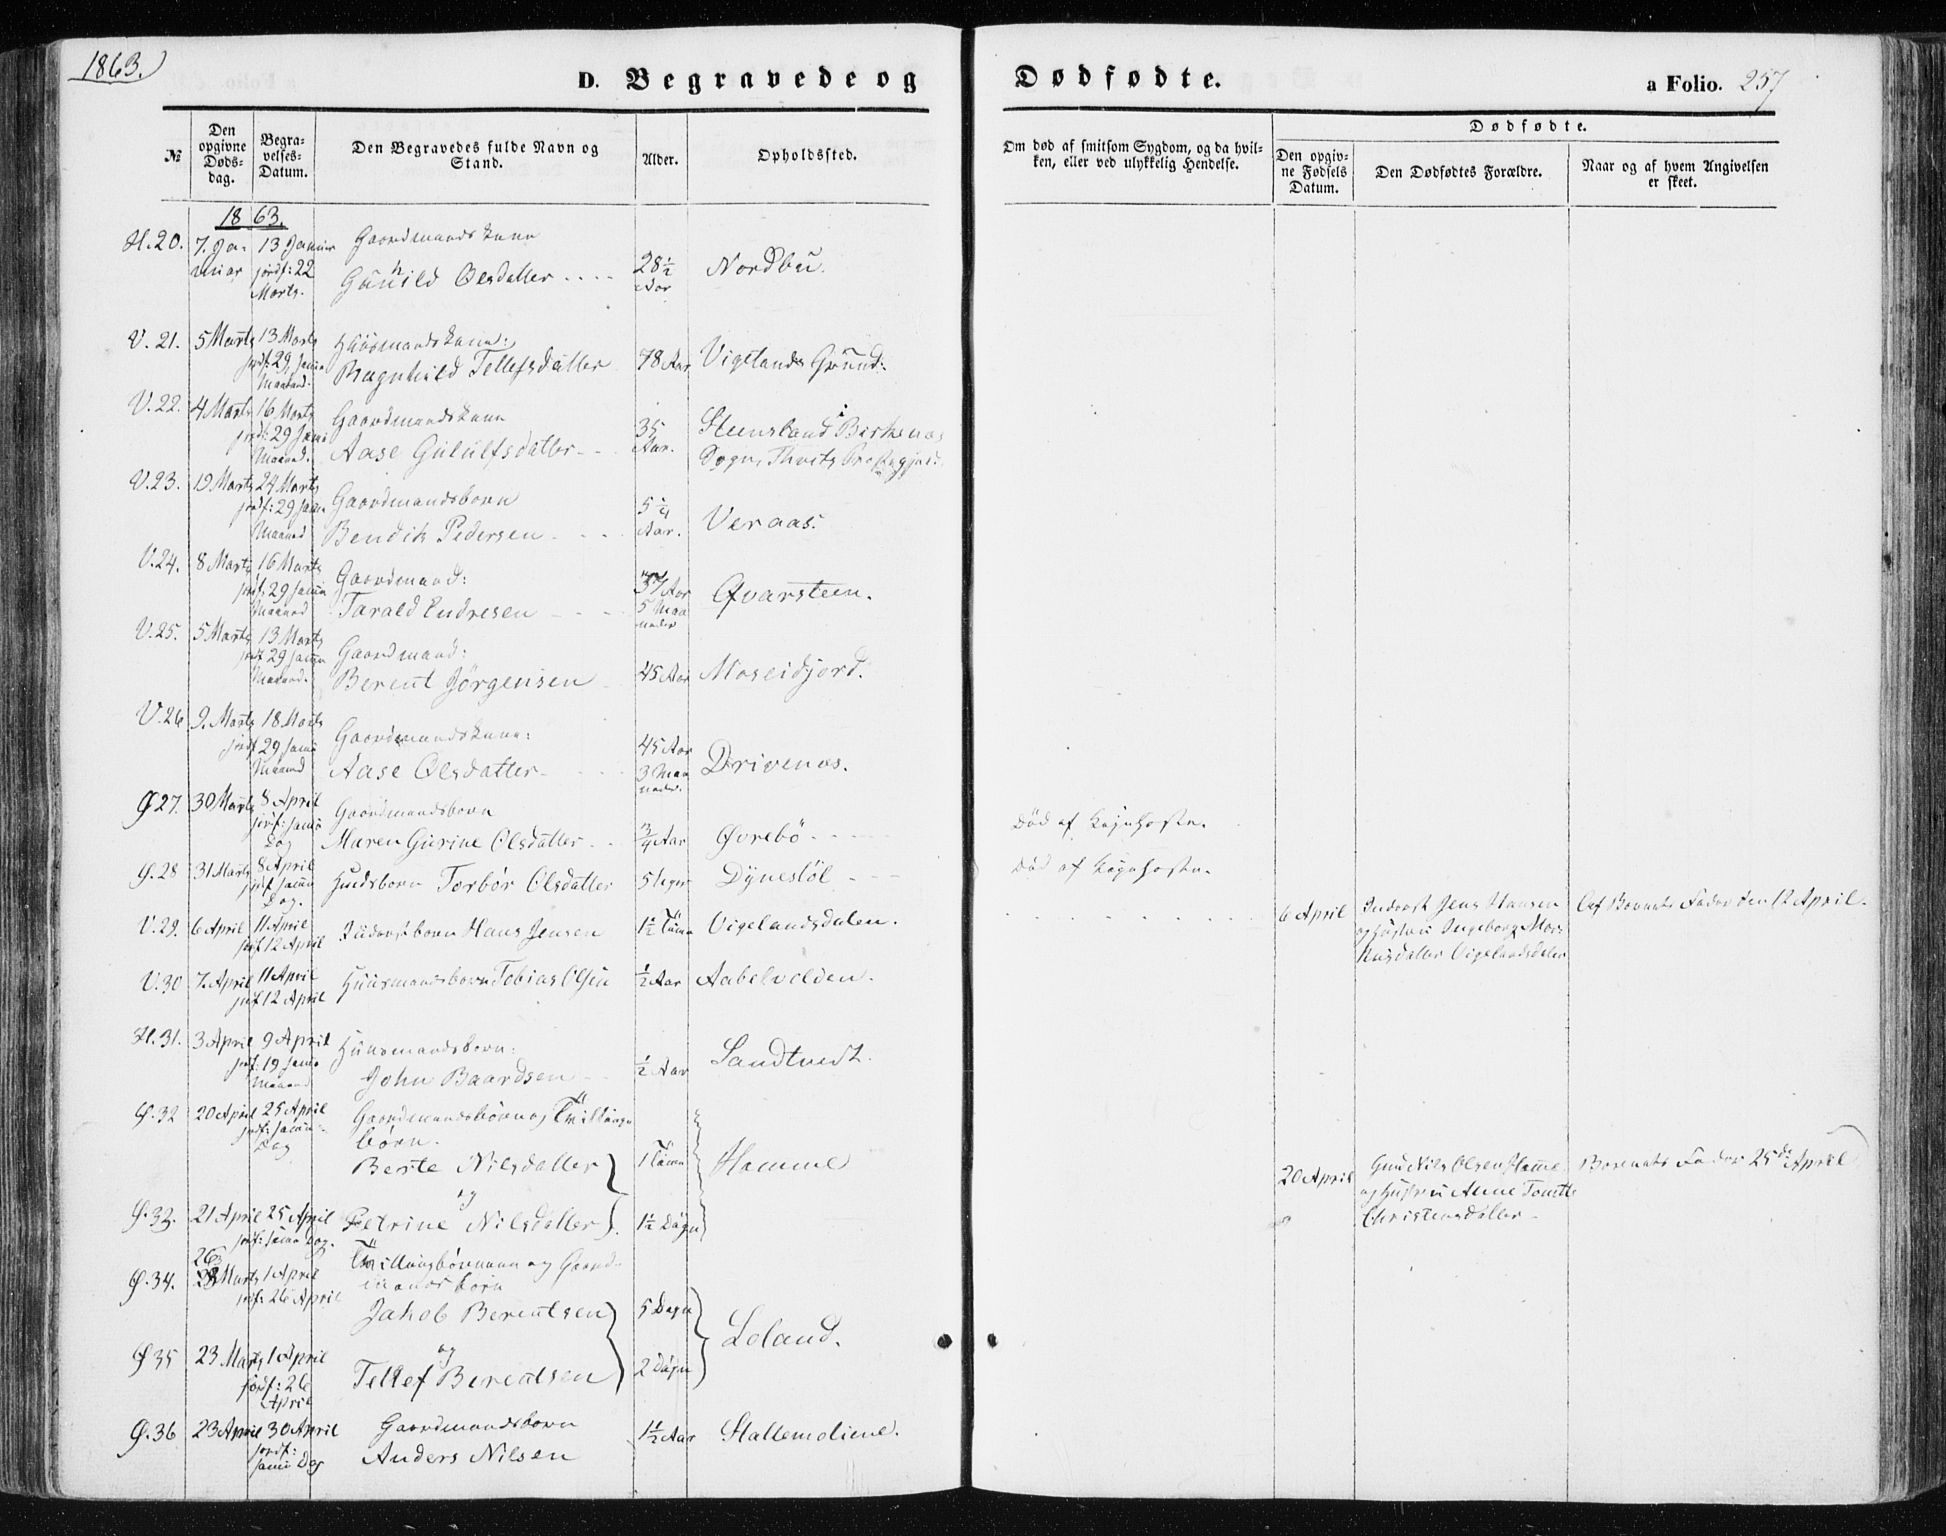 1863.
D. Begravede og Dødfødte.
a Folio. 257
№
Den opgivne Døds-dag.
Begra-velses-Datum.
Den Begravedes fulde Navn og Stand.
Alder.
Opholdssted.
Om død af smitsom Sygdom, og da hvil-ken, eller ved ulykkelig Hendelse.
Dødfødte.
Den opgiv-ne Fødsels Datum.
Den Dødfødtes Forældre.
Naar og af hvem Angivelsen er skeet.
1863.
H.20. 7. Januar 13 Januar jordf: 22 Marts. Gaardmandskone
Gunild Olsdatter 28 1/2 Aar Nordbu.
V. 21. 5 Marts 13 Marts jordf: 29 samme Maaned. Huusmandskone:
Ragnhild Tellefsdatter 78 Aar Vigelands Grund:
V.22. 4 Marts 16 Marts jordf: 29 samme Maaned. Gaardmandskone
Aase Gululfsdatter 35 Aar. Steensland i Birkenæs
Sogn, Thveits Præstegjeld.
V.23. 19 Marts 24 Marts jordf: 29 samme Maaned Gaardmandsbarn
Bendik Pedersen 5 1/4 Aar. Veraas.
V.24. 8 Marts 16 Marts jordf: 29 samme Maaned Gaardmand:
Tarald Endresen 37 Aar 5 Maaneder Qvarsteen.
V.25. 5 Marts 13 Marts jordf 29 samme Maaned. Gaardmand:
Berent Jörgensen 45 Aar Moseidjord.
V.26 9. Marts 18 Marts jordf 29 samme Maaned Gaardmandskone:
Aase Olsdatter 45 Aar 3 Maaneder. Drivenes.
Ø 27. 30 Marts 8 April jordf: samme Dag Gaardmandsbarn
Maren Gurine Olsdatter 3/4 Aar Øvrebö Död af Kighoste.
Ø.28 31 Marts 8 April jordf samme Dag. Torbör Olsdatter 5 Uger Dynestöl Död af Kighoste.
V.29. 6 April 11 April jordf 12 April Inderstbarn Hans Jensen 1 1/2 Time Vigelandsdalen. 6 April Inderst Jens Hansen Af Barnets Fader den 12 April.
og Hustru Ingeborg
Vigelandsdalen
V.30 7 April 11 April jordf 12 April Huusmandsbarn Tobias Olsen 1/2 Aar Aabelvolden.
H.31. 3 April 9 April jordf: 19 samme Maaned Huusmandsbarn:
John Baardsen 1/2 Aar Sandtvedt.
Ø.32 20 April 25 April jordf: samme Dag Gaardmandsbörn og Tvillinge
börn.
Berte Nilsdatter 1 Time Homme 20 April Gmd Nils Olsen Homme Barnets Fader 25de April
og Hustru Anne Tomette
Christensdatter
og
Ø.33. 21 April 25 April jordf: samme Dag. Petrine Nilsdatter 1 1/2 Dögn
Ø.34. 26 Marts 1 April jordf: 26 April Tvillingbörnene og Gaard-
mandsbörn
Jakob Berentsen 5 Dögn Loland.
og
Ø 35 23 Marts 1 April jordf: 26 April Tellef Berentsen 2 Dögn
Ø.36 23 April 30 April jordf: samme Dag Gaardmandsbarn
Anders Nilsen 1 1/2 Aar Stallemoliene.